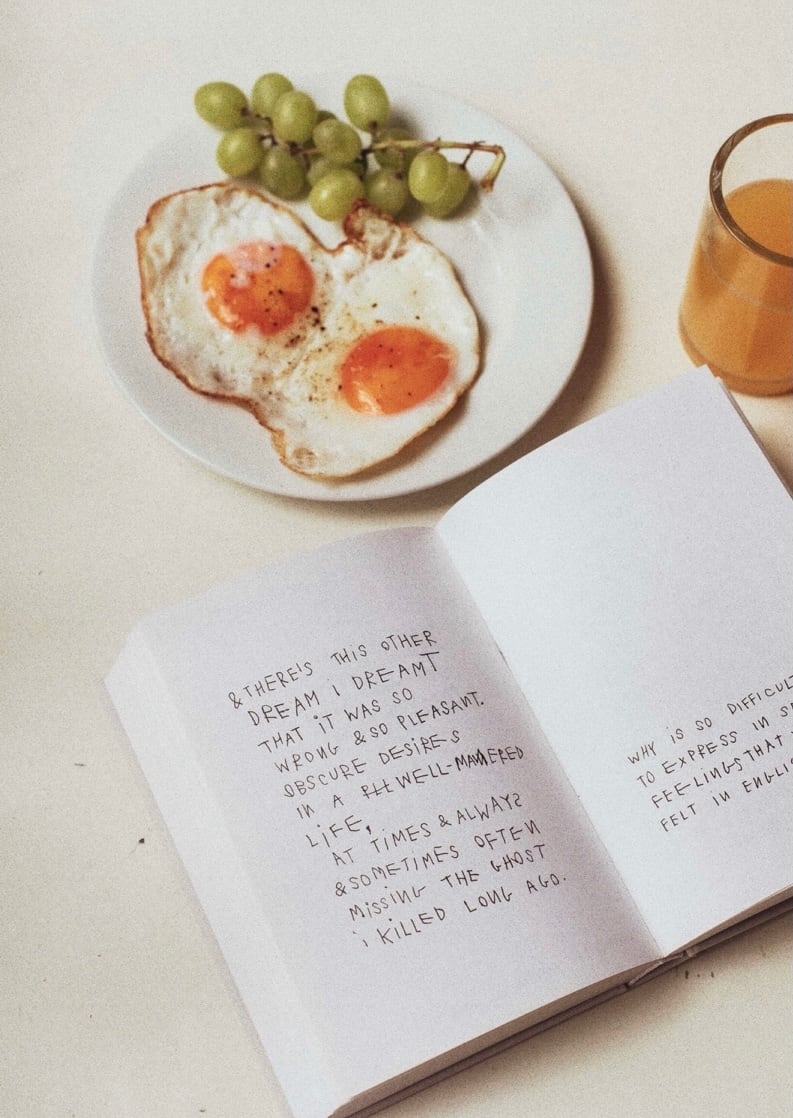 &THERE'S THIS OTHER
DREAM i DREAMT
THAT iT WAS SO
WRONG & SO PLEASANT.
OBSCURE DESiRES
IN A WELL-MANNERED
LiFE,
AT TiMES & ALWAYS
&SOMETIMES OFTEN
MiSSiNG THE GHOST
i KiLLED LONG AGO.
WHY iS SO DiFFiCULT
TO EXPRESS IN
FEELINGS THAT
FELT IN